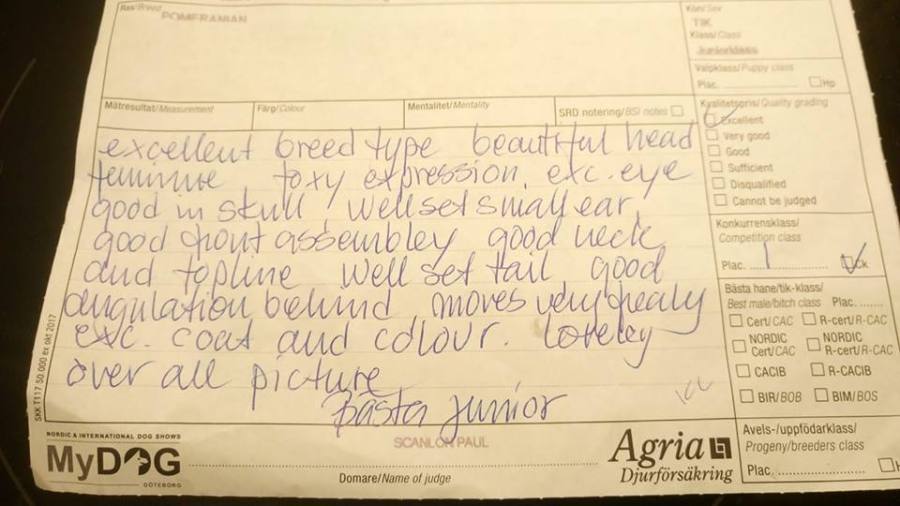 Ras/Breed
POMERANIAN
Kön/Sex
TIK
Klass/Class
Juniorklass
Valpklass/Puppy class
Plac. Hp
Mätresultat/Measurement
Färg/Colour
Mentalitet/Mentality
SRD notering/BSI notes
Kvalitetspris/Quality grading
Excellent
Very good
Good
Sufficient
Disqualified
Cannot be judged
excellent breed type beautiful head
feminine foxy expression, exc. eye
good in skull, well set small ear,
good front assembley good neck
and topline well set tail good
angulation behind moves very
exc. coat and colour. Loveley
over all picture
Bästa junior
Konkurrensklass/
Competition class
Plac. 1 Ck
Bästa hane/tik-klass/
Best male/bitch class Plac.
Cert/CAC R-cert/R-CAC
NORDIC Cert/CAC NORDIC R-cert/R-CAC
CACIB R-CACIB
BIR/BOB BIM/BOS
Avels-/uppfödarklass/
Progeny/breeders class
Plac.
SKK T117 50.000 ex okt 2017
NORDIC & INTERNATIONAL DOG SHOWS
MyDOG
GÖTEBORG
SCANLON PAUL
Domare/Name of judge
Agria
Djurförsäkring